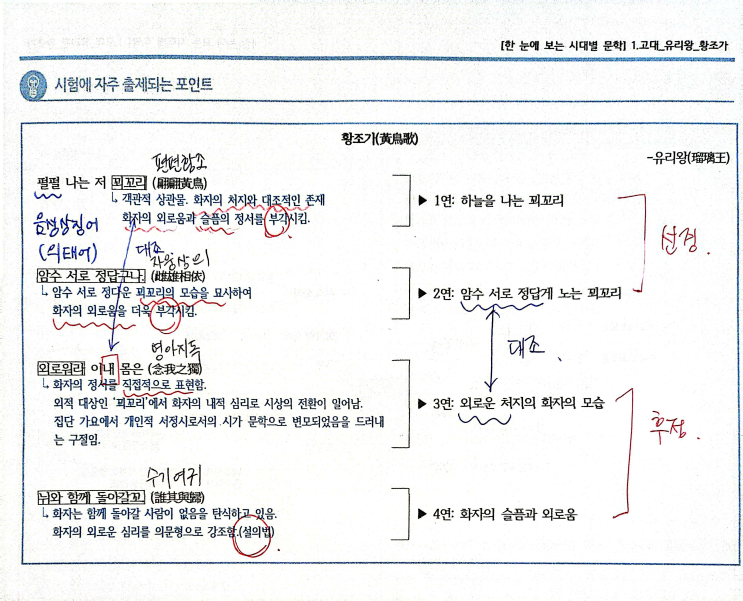 [한 눈에 보는 시대별 문학] 1.고대_유리왕_황조가
시험에 자주 출제되는 포인트
황조가(黃鳥歌)
-유리왕(瑠璃王)
편편황조
펄펄 나는 저 꾀꼬리 (翩翩黃鳥)
↳ 객관적 상관물. 화자의 처지와 대조적인 존재
화자의 외로움과 슬픔의 정서를 부각시킴.
▶ 1연: 하늘을 나는 꾀꼬리
음성상징어
(의태어)
선경.
대조
자웅상의
암수 서로 정답구나 (雌雄相依)
↳ 암수 서로 정다운 꾀꼬리의 모습을 묘사하여
화자의 외로움을 더욱 부각시킴.
▶ 2연: 암수 서로 정답게 노는 꾀꼬리
대조.
염아지독
외로워라 이내 몸은 (念我之獨)
↳ 화자의 정서를 직접적으로 표현함.
외적 대상인 '꾀꼬리'에서 화자의 내적 심리로 시상의 전환이 일어남.
집단 가요에서 개인적 서정시로서의 시가 문학으로 변모되었음을 드러내
는 구절임.
▶ 3연: 외로운 처지의 화자의 모습
후정.
수기여귀
뉘와 함께 돌아갈꼬 (誰其與歸)
↳ 화자는 함께 돌아갈 사람이 없음을 탄식하고 있음.
화자의 외로운 심리를 의문형으로 강조함.(설의법)
▶ 4연: 화자의 슬픔과 외로움